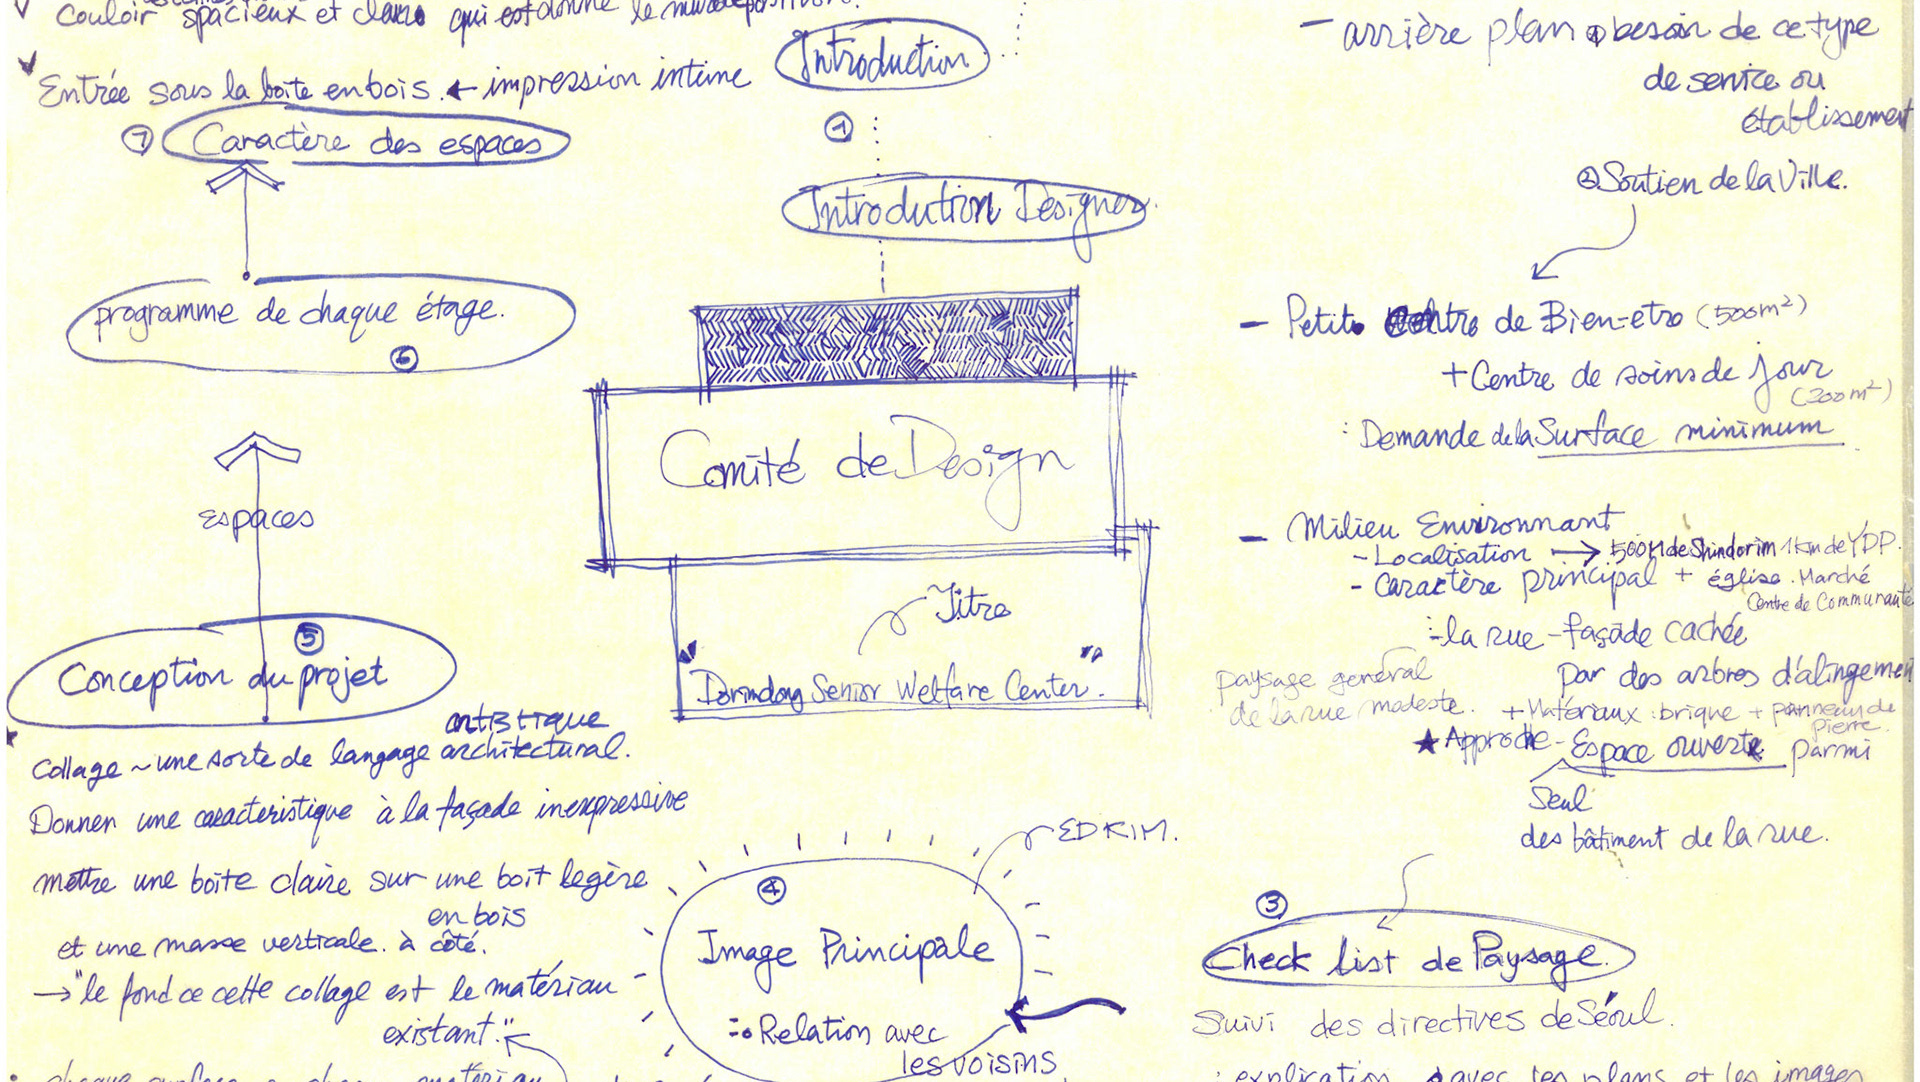 Couloir spacieux et claire qui est donné le
Entrée sous la boite en bois. ← impression intime
⑦ Caractère des espaces
programme de chaque étage.
⑥
ESPACES
⑤
Conception du projet
artistique
Collage ~ une sorte de langage architectural.
Donnen une caracteristique à la façade inexpressive
mettre une boite claire sur une boit legère
en bois
et une masse verticale. à côté.
→ "le fond ce cette collage est le matériau
existant."
Introduction
①
Introdution Designer
Comité de Design
Titre
"Dorimdong Senior Welfare Center."
EDRIM.
④
Image Principale
Relation avec
les voisins
- arrière plan ① besoin de ce type
de service ou
établissement
② Soutien de la Ville.
- Petit Centre de Bien-etre (500m²)
+ Centre de soins de jour
(200m²)
: Demande de la Surface minimum
- Milieu Environnant
- Localisation → 500M de Shindorim 1km de YDP.
- caractère principal + église . Marché
Centre de Communauté
- la rue - façade cachée
par des arbres d'alingement
paysage general
de la rue modeste.
+ Matériaux : brique + panneau de
pierre.
★ Approche - Espace ouverte parmi
Seul
des bâtiment de la rue.
③
Check list de Paysage.
Suivi des directives de Séoul.
: explication avec les plans et les images